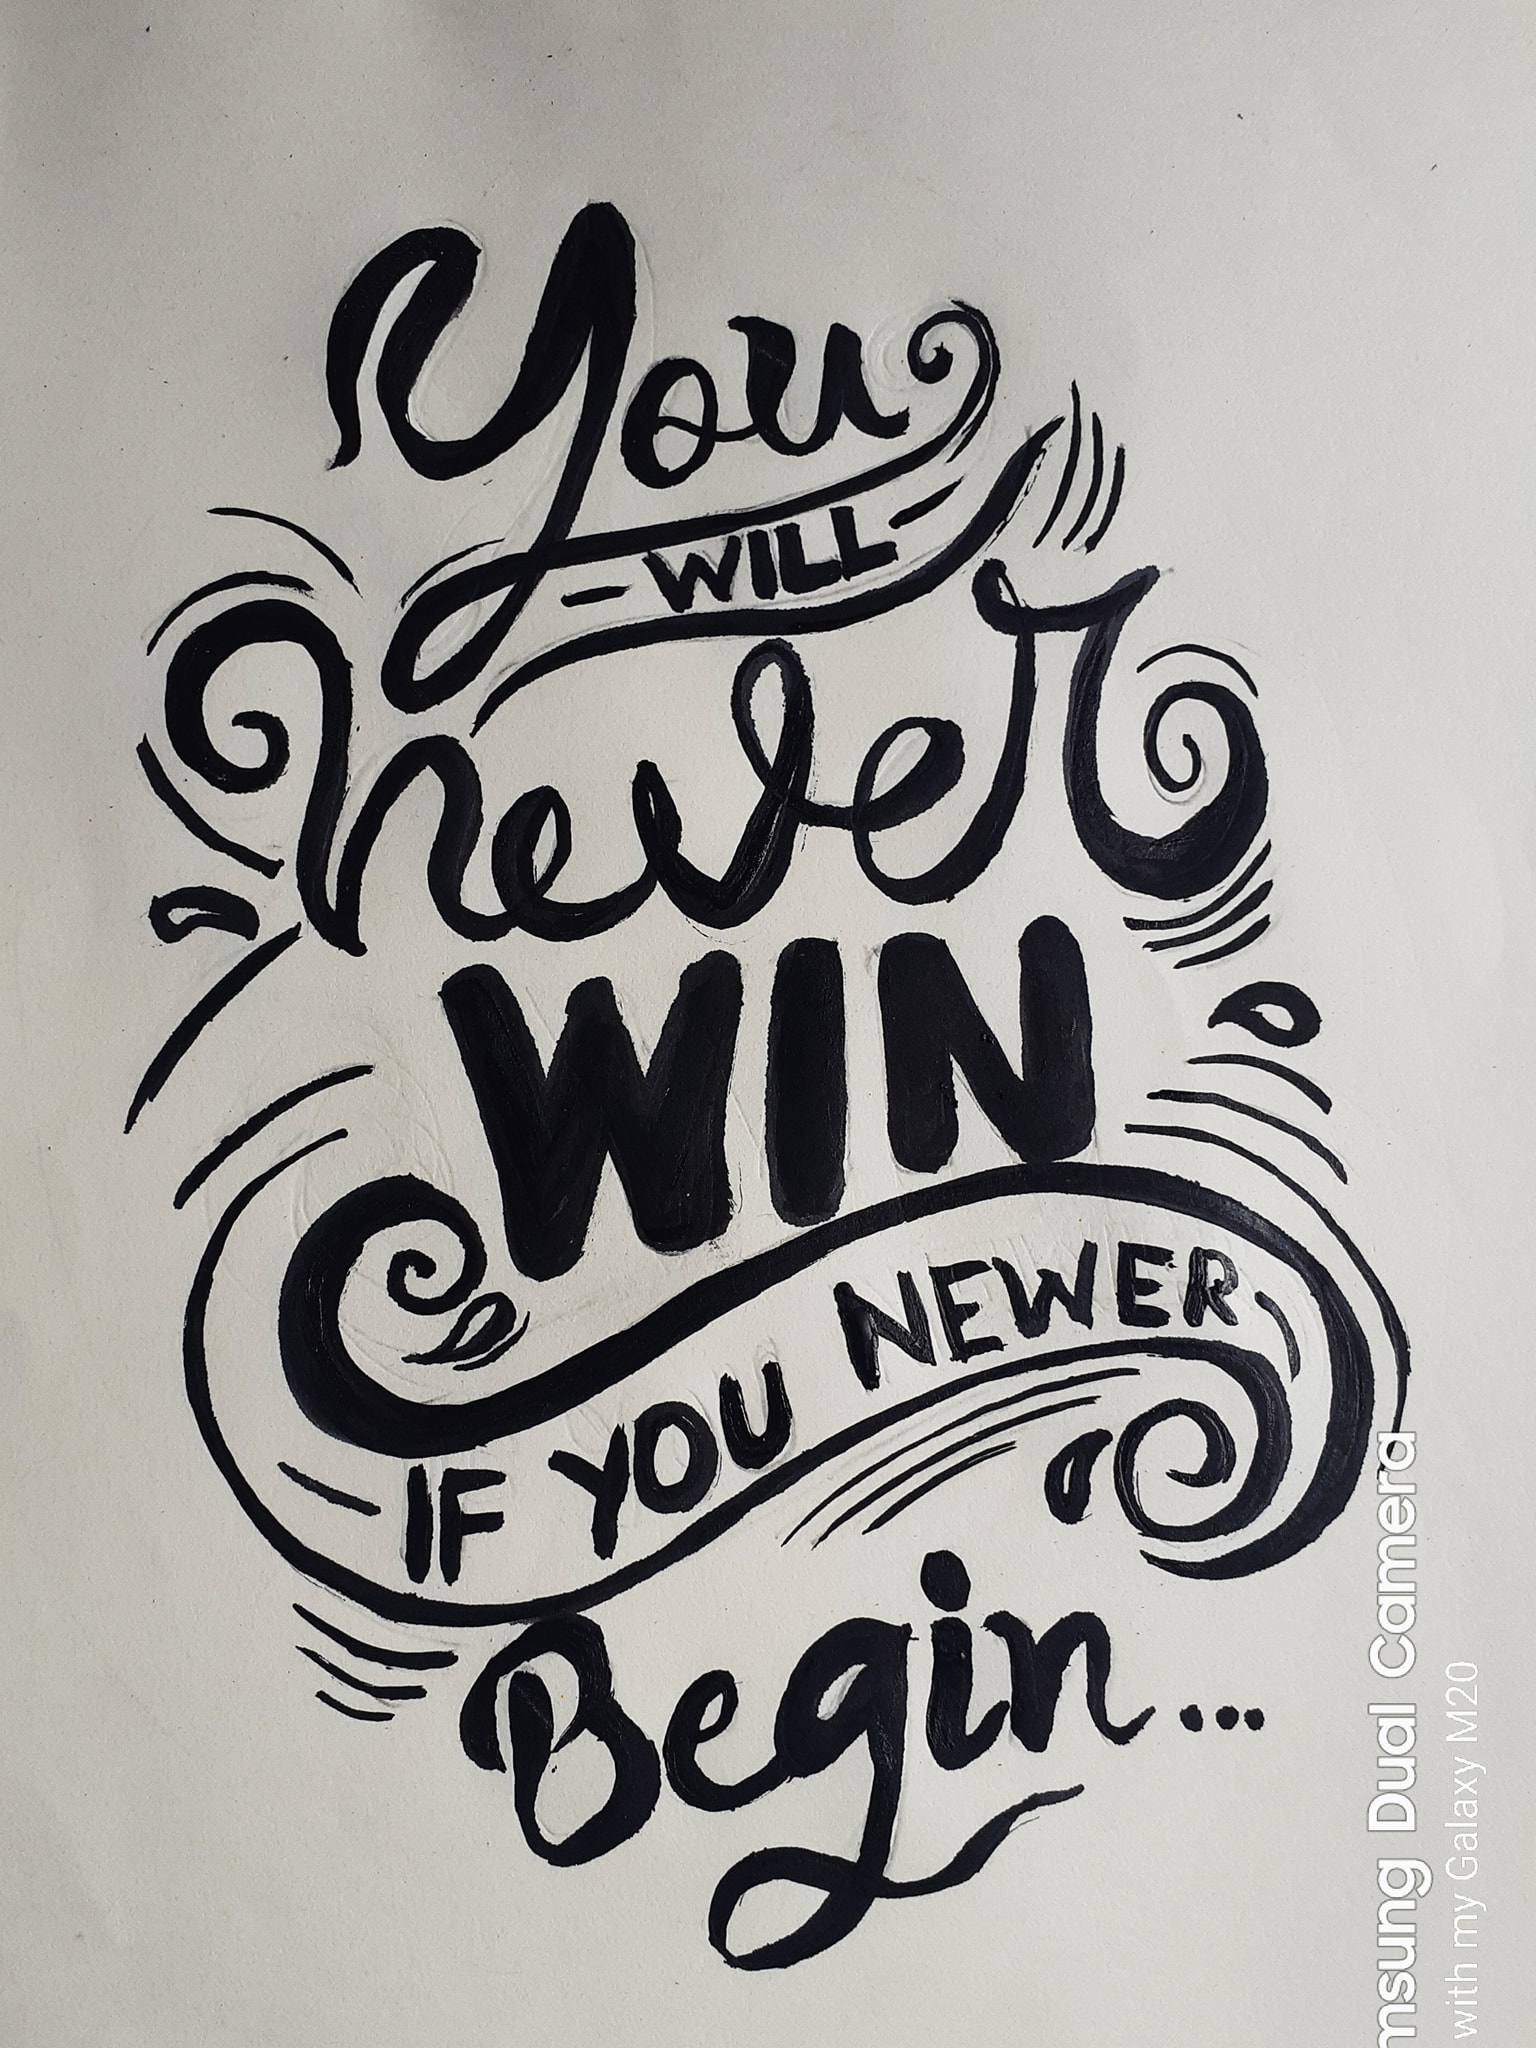 You
- WILL -
never
WIN
IF YOU NEWER
Begin...
msung Dual Camera
with my Galaxy M20